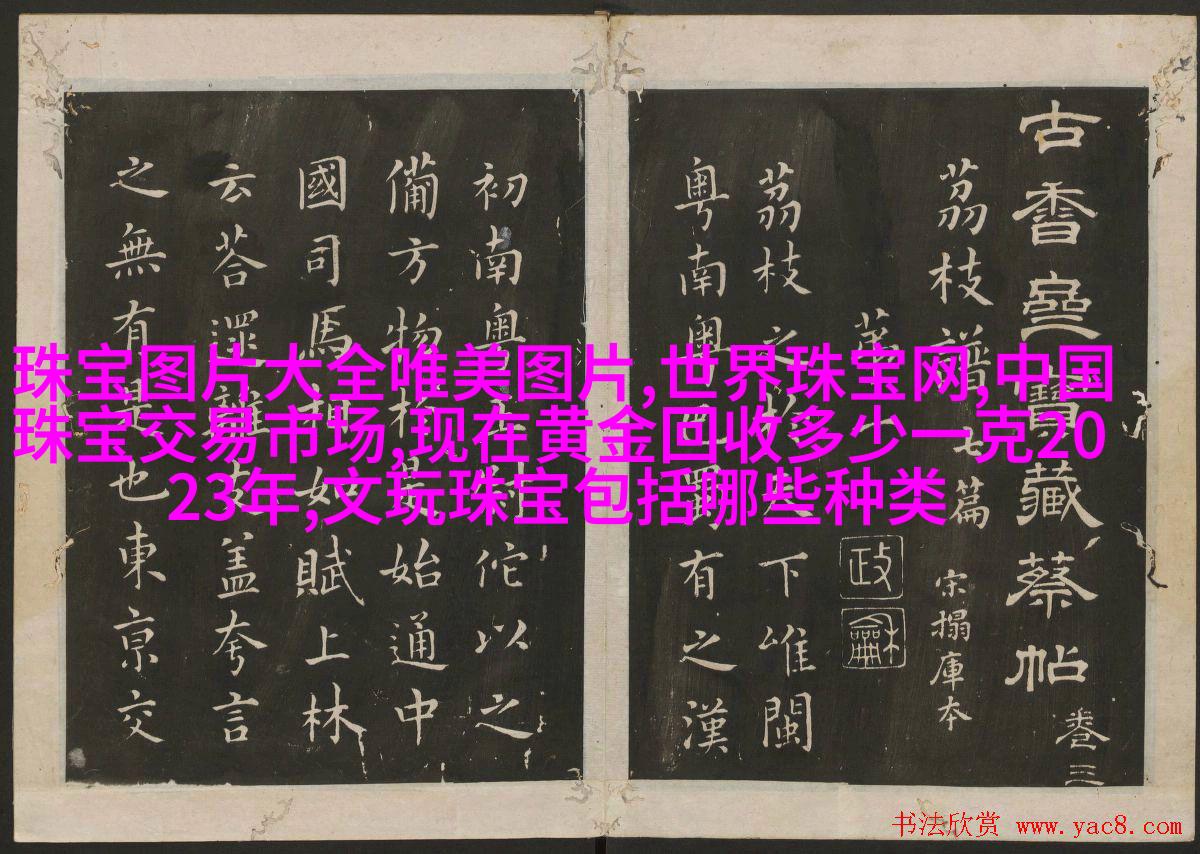 古香齋寶藏蔡帖 卷三
荔枝譜七篇 宋搨庫本
政龢
荔枝之於天下唯閩
粵南粵巴蜀有之漢
初南粵王尉佗以之
備方物於是始通中
國司馬相如賦上林
云荅遝離支蓋夸言
之無有是也東京交
珠宝图片大全唯美图片,世界珠宝网,中国
珠宝交易市场,现在黄金回收多少一克20
23年,文玩珠宝包括哪些种类
书法欣赏 www.yac8.com